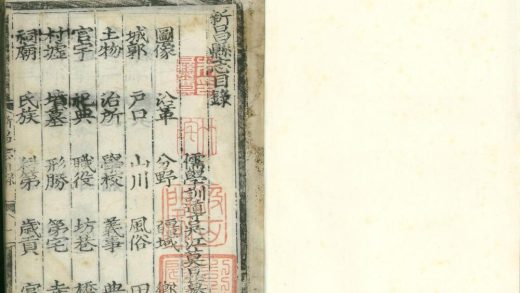 新昌縣志目錄
儒學訓導吳江莫旦纂
圖像 沿革 分野 疆域 鄉
城郭 戶口 山川 風俗 田
土物 治所 學校 義事 典
官宇 祀典 職役 坊巷 橋
村墟 墳墓 形勝 第宅 寺
祠廟 氏族 科第 歲貢